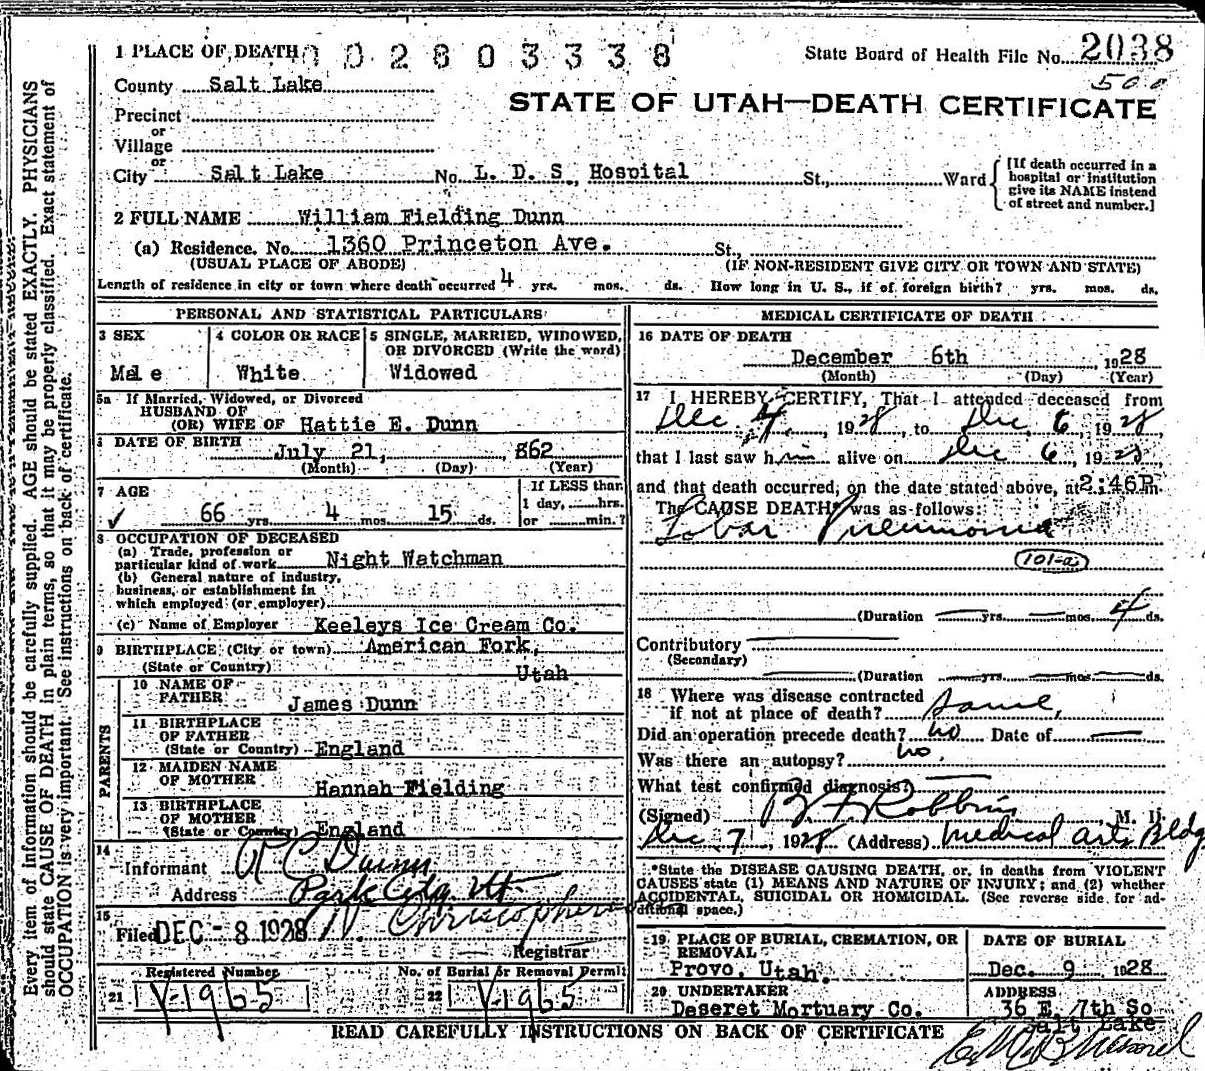 1 PLACE OF DEATH 002803338 State Board of Health File No. 2038
500
County Salt Lake
STATE OF UTAH—DEATH CERTIFICATE
Precinct
or
Village
or
City Salt Lake No. L. D. S. Hospital St., Ward
[If death occurred in a
hospital or institution
give its NAME instead
of street and number.]
2 FULL NAME William Fielding Dunn
(a) Residence. No. 1360 Princeton Ave. St.,
(USUAL PLACE OF ABODE) (IF NON-RESIDENT GIVE CITY OR TOWN AND STATE)
Length of residence in city or town where death occurred 4 yrs. mos. ds. How long in U. S., if of foreign birth? yrs. mos. ds.
PERSONAL AND STATISTICAL PARTICULARS
3 SEX
Male
4 COLOR OR RACE
White
5 SINGLE, MARRIED, WIDOWED,
OR DIVORCED (Write the word)
Widowed
5a If Married, Widowed, or Divorced
HUSBAND OF
(OR) WIFE OF Hattie E. Dunn
6 DATE OF BIRTH
July 21, 862
(Month) (Day) (Year)
7 AGE
66 yrs. 4 mos. 15 ds.
If LESS than
1 day, hrs.
or min.?
8 OCCUPATION OF DECEASED
(a) Trade, profession or
particular kind of work Night Watchman
(b) General nature of industry,
business, or establishment in
which employed (or employer)
(c) Name of Employer Keeleys Ice Cream Co.
9 BIRTHPLACE (City or town) American Fork,
(State or Country) Utah
PARENTS
10 NAME OF
FATHER James Dunn
11 BIRTHPLACE
OF FATHER
(State or Country) England
12 MAIDEN NAME
OF MOTHER Hannah Fielding
13 BIRTHPLACE
OF MOTHER
(State or Country) England
14
Informant C Dunn
Address Park City Ut
15
Filed DEC - 8 1928
Registrar
Registered Number
21 V-1965
No. of Burial or Removal Permit
22 V-1965
MEDICAL CERTIFICATE OF DEATH
16 DATE OF DEATH
December 6th, 1928
(Month) (Day) (Year)
17 I HEREBY CERTIFY, That I attended deceased from
Dec 4, 1928, to Dec 6, 1928,
that I last saw him alive on Dec 6, 1928,
and that death occurred, on the date stated above, at 2:46P m.
The CAUSE DEATH* was as follows:
Lobar Pneumonia
101-a
(Duration yrs. mos. 4 ds.
Contributory
(Secondary)
(Duration yrs. mos. ds.
18 Where was disease contracted
if not at place of death? Same,
Did an operation precede death? no Date of
Was there an autopsy? no
What test confirmed diagnosis?
(Signed) Robbins, M. D.
Dec 7 1928 (Address) Medical Arts Bldg
*State the DISEASE CAUSING DEATH, or, in deaths from VIOLENT
CAUSES state (1) MEANS AND NATURE OF INJURY; and (2) whether
ACCIDENTAL, SUICIDAL OR HOMICIDAL. (See reverse side for ad-
ditional space.)
19 PLACE OF BURIAL, CREMATION, OR
REMOVAL
Provo, Utah.
DATE OF BURIAL
Dec. 9 1928
20 UNDERTAKER
Deseret Mortuary Co.
ADDRESS
36 E. 7th So
Salt Lake
READ CAREFULLY INSTRUCTIONS ON BACK OF CERTIFICATE
Every item of information should be carefully supplied. AGE should be stated EXACTLY. PHYSICIANS
should state CAUSE OF DEATH in plain terms, so that it may be properly classified. Exact statement of
OCCUPATION is very important. See instructions on back of certificate.